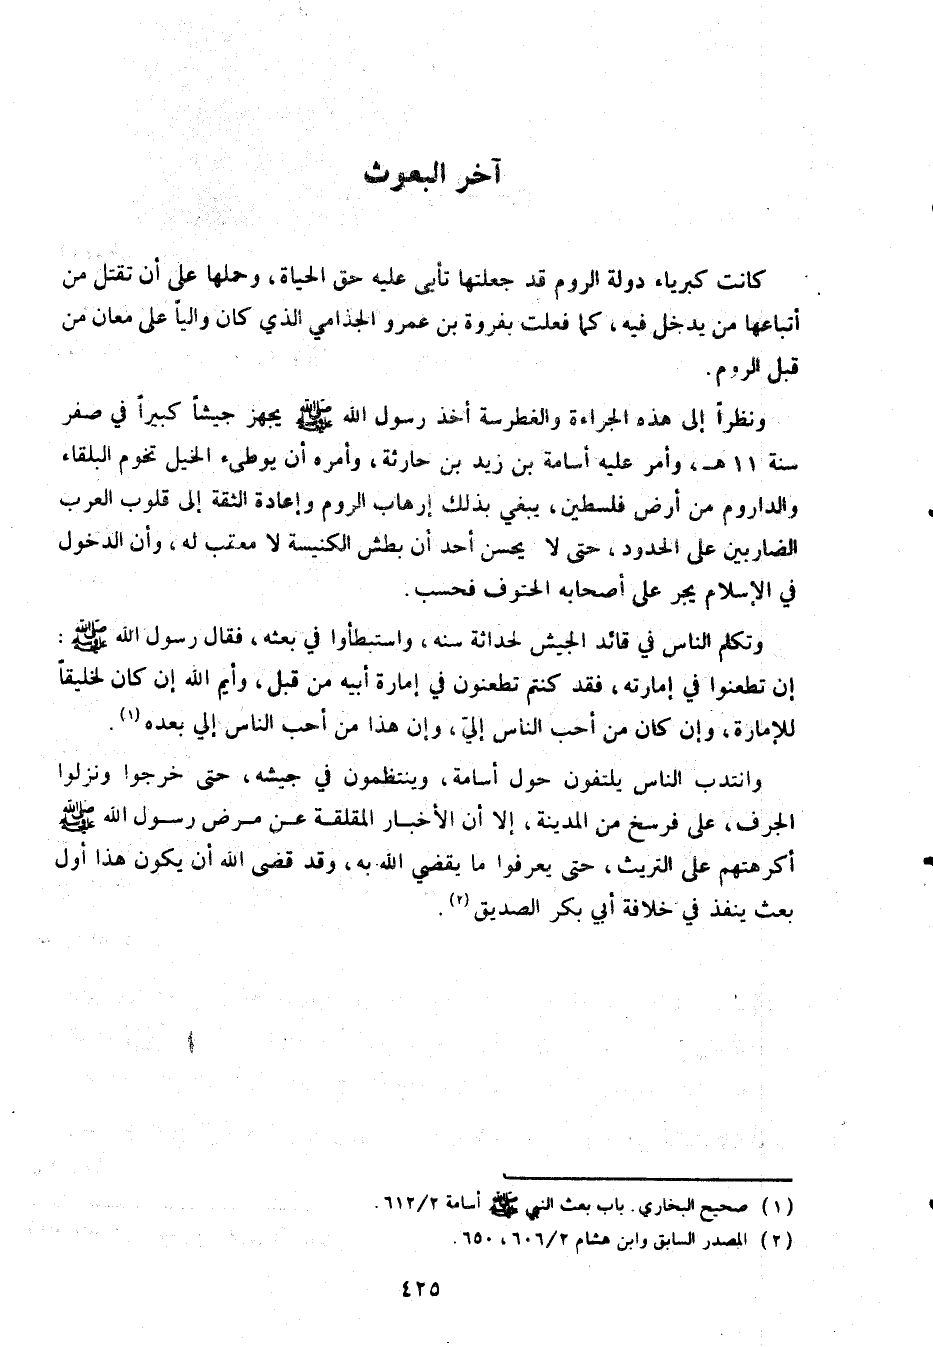 آخر البعوث
كانت كبرياء دولة الروم قد جعلتها تأبى عليه حق الحياة، وحملها على أن تقتل من
أتباعها من يدخل فيه، كما فعلت بفروة بن عمرو الجذامي الذي كان والياً على معان من
قبل الروم.
ونظراً إلى هذه الجراءة والغطرسة أخذ رسول الله ﷺ يجهز جيشاً كبيراً في صفر
سنة ١١ هـ، وأمر عليه أسامة بن زيد بن حارثة، وأمره أن يوطىء الخيل تخوم البلقاء
والداروم من أرض فلسطين، يبغي بذلك إرهاب الروم وإعادة الثقة إلى قلوب العرب
الضاربين على الحدود، حتى لا يحسن أحد أن بطش الكنيسة لا معتب له، وأن الدخول
في الإسلام يجر على أصحابه الحتوف فحسب.
وتكلم الناس في قائد الجيش لحداثة سنه، واستبطأوا في بعثه، فقال رسول الله ﷺ :
إن تطعنوا في إمارته، فقد كنتم تطعنون في إمارة أبيه من قبل، وأيم الله إن كان لخليقاً
للإمارة، وإن كان من أحب الناس إليّ، وإن هذا من أحب الناس إلي بعده (١).
وانتدب الناس يلتفون حول أسامة، وينتظمون في جيشه، حتى خرجوا ونزلوا
الجرف، على فرسخ من المدينة، إلا أن الأخبار المقلقة عن مرض رسول الله ﷺ
أكرهتهم على التريث، حتى يعرفوا ما يقضي الله به، وقد قضى الله أن يكون هذا أول
بعث ينفذ في خلافة أبي بكر الصديق (٢).
(١) صحيح البخاري. باب بعث النبي ﷺ أسامة ٦١٢/٢.
(٢) المصدر السابق وابن هشام ٦٠٦/٢، ٦٥٠.
٤٢٥